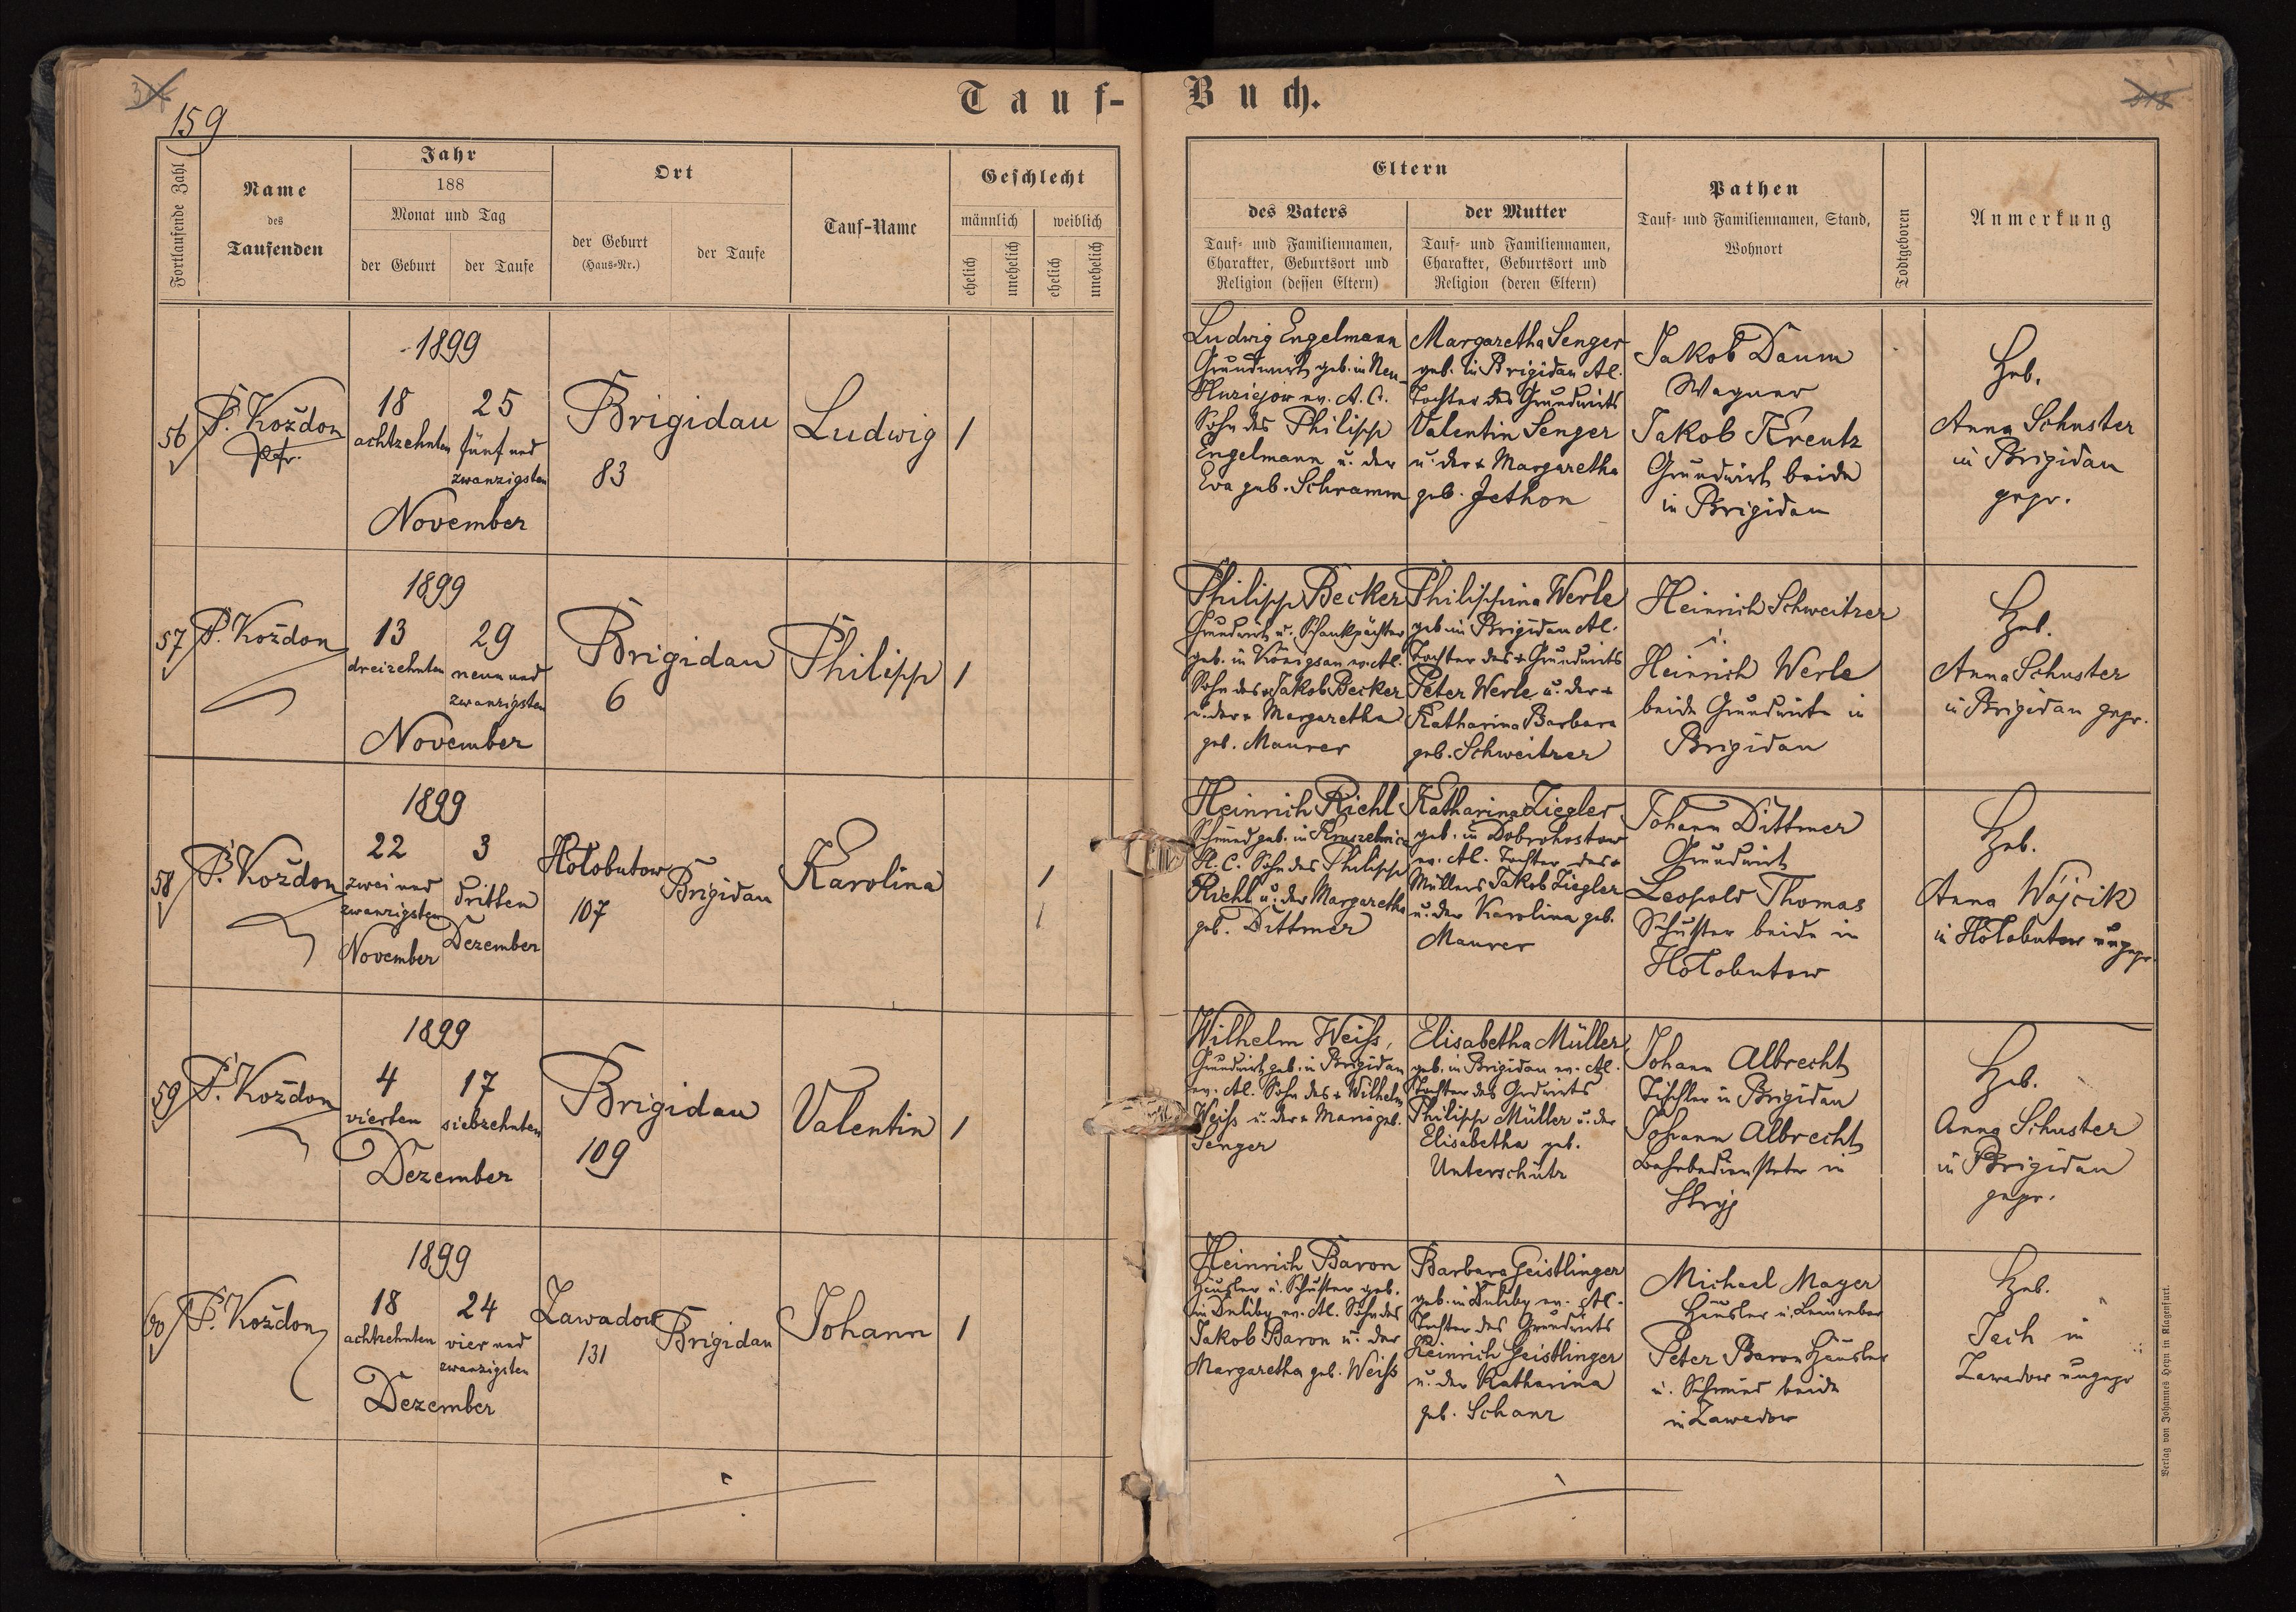 159
Tauf-Buch.
Fortlaufende Zahl
Name
des
Taufenden
Jahr
188
Monat und Tag
der Geburt
der Taufe
Ort
der Geburt
(Haus-Nr.)
der Taufe
Tauf-Name
Geschlecht
männlich
weiblich
ehelich
unehelich
ehelich
unehelich
Eltern
des Vaters
Tauf- und Familiennamen,
Charakter, Geburtsort und
Religion (dessen Eltern)
der Mutter
Tauf- und Familiennamen,
Charakter, Geburtsort und
Religion (deren Eltern)
Pathen
Tauf- und Familiennamen, Stand,
Wohnort
Todtgeboren
Anmerkung
56
P. Koždon
Pfr.
1899
18
achtzehnten
25
fünf und
zwanzigsten
November
Brigidau
83
Ludwig
1
Ludwig Engelmann
Grundwirt geb. in Neu-
ev. A. C.
Sohn des Philipp
Engelmann u. der
Eva geb. Schramm
Margaretha Senger
geb. in Brigidau AC.
Tochter des Grundwirts
Valentin Senger
u. der + Margaretha
geb. Jethon
Jakob Daum
Wagner
Jakob Kreutz
Grundwirt beide
in Brigidau
Heb.
Anna Schuster
in Brigidau
gepr.
57
P. Koždon
1899
13
dreizehnten
29
neun und
zwanzigsten
November
Brigidau
6
Philipp
1
Philipp Becker
Grundwirt u. Schankpächter
geb. in Königsau ev. AC.
Sohn des + Jakob Becker
u. der + Margaretha
geb. Maurer
Philippina Werle
geb. in Brigidau AC.
Tochter des + Grundwirts
Peter Werle u. der +
Katharina Barbara
geb. Schweitzer
Heinrich Schweitzer
u.
Heinrich Werle
beide Grundwirte in
Brigidau
Heb.
Anna Schuster
in Brigidau gepr.
58
P. Koždon
1899
22
zwei und
zwanzigsten
November
3
dritten
Dezember
Hołobutow
107
Brigidau
Karolina
1
1
Heinrich Riehl
Schmied geb. in
H. C. Sohn des Philipp
Riehl u. der Margaretha
geb. Dittmer
Katharina Ziegler
geb. in Dobrohostow
ev. AC. Tochter des +
Müllers Jakob Ziegler
u. der Karolina geb.
Maurer
Johann Dittmer
Grundwirt
Leopold Thomas
Schuster beide in
Hołobutow
Heb.
Anna Wójcik
in Hołobutow ungepr.
59
P. Koždon
1899
4
vierten
17
siebzehnten
Dezember
Brigidau
109
Valentin
1
Wilhelm Weiss,
Grundwirt geb. in Brigidau
ev. AC. Sohn des + Wilhelm
Weiss u. der + Maria geb.
Senger
Elisabetha Müller
geb. in Brigidau ev. AC.
Tochter des Grdwirts
Philipp Müller u. der
Elisabetha geb.
Unterschütz
Johann Albrecht
Tischler in Brigidau
Johann Albrecht
Bahnbediensteter in
Stryj
Heb.
Anna Schuster
in Brigidau
gepr.
60
P. Koždon
1899
18
achtzehnten
24
vier und
zwanzigsten
Dezember
Zawadow
131
Brigidau
Johann
1
Heinrich Baron
Häusler u. Schuster geb.
in Duliby ev. AC. Sohn des
Jakob Baron u. der
Margaretha geb. Weiss
Barbara Geistlinger
geb. in Duliby ev. AC.
Tochter des Grundwirts
Heinrich Geistlinger
u. der Katharina
geb. Schanz
Michael Mayer
Häusler u. Leinweber
Peter Baron Häusler
u. Schmied beide
in Zawadow
Heb.
Jach in
Zawadow ungepr
Verlag von Johannes Heyn in Klagenfurt.